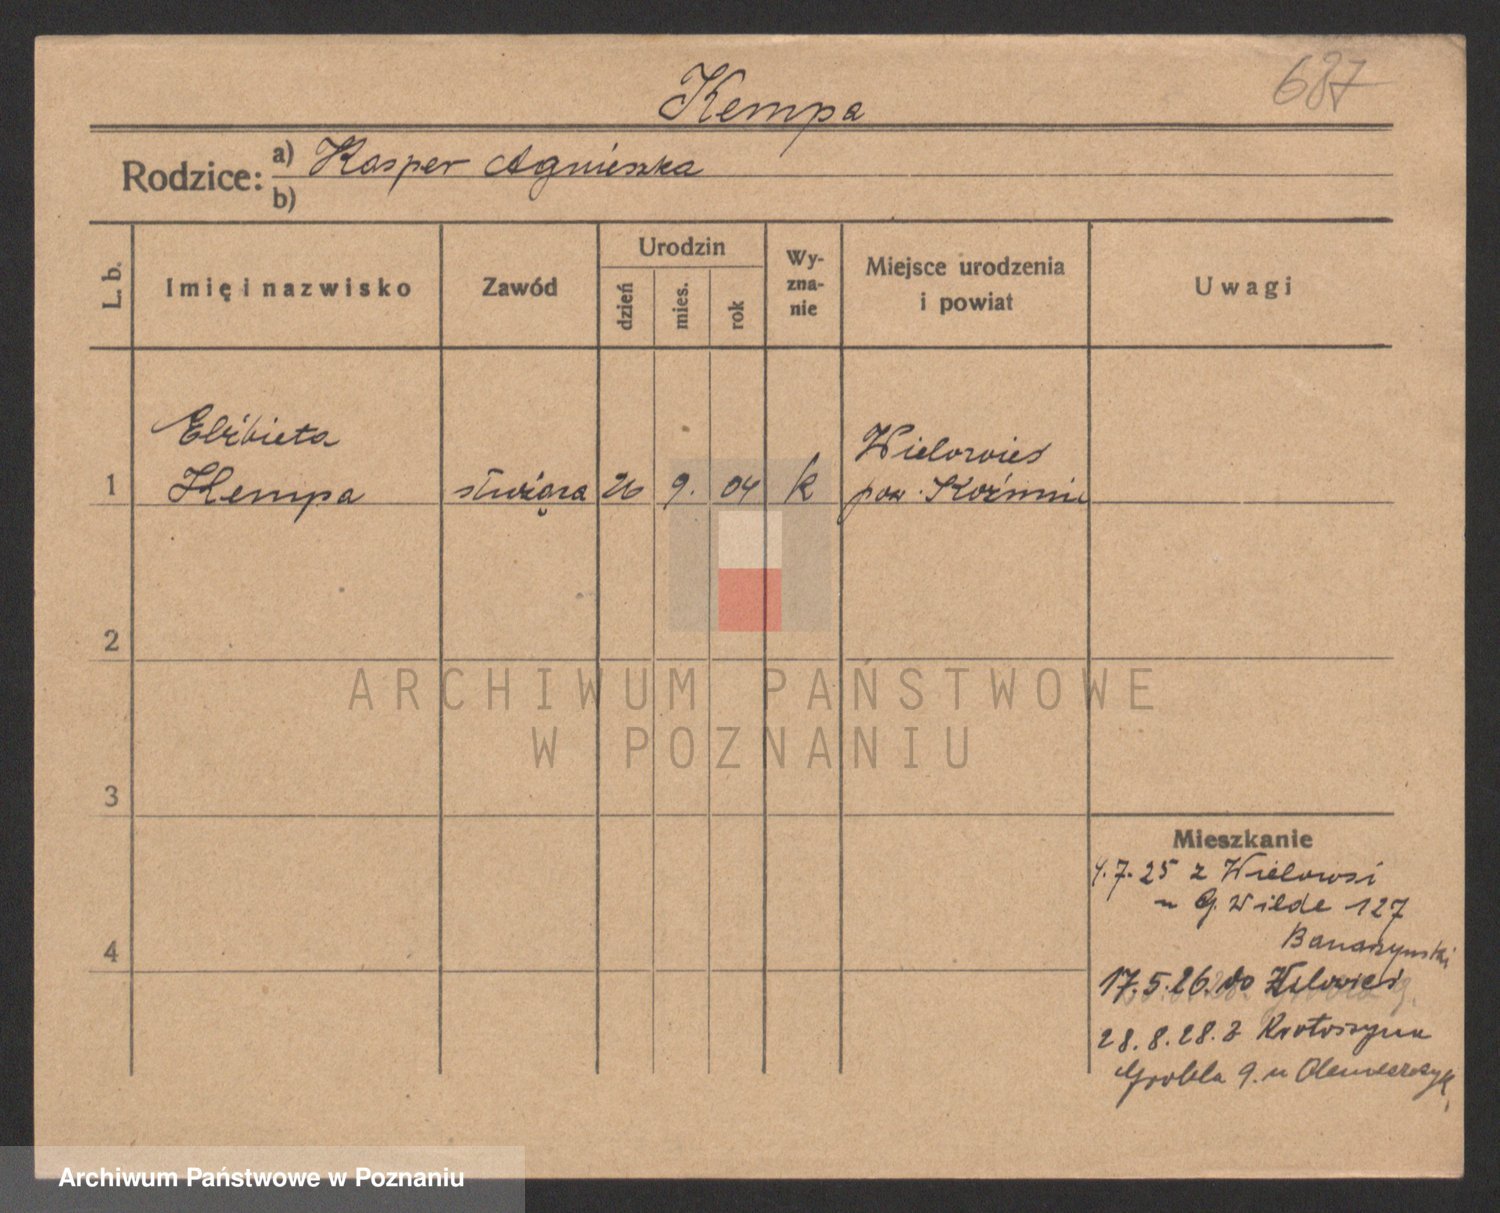 687
Kempa
Rodzice: a) Kasper Agnieszka
b)
L. b.
Imię i nazwisko
Zawód
Urodzin
dzień
mies.
rok
Wy-
zna-
nie
Miejsce urodzenia
i powiat
Uwagi
Elżbieta
1 Kempa służąca 26 9. 04 k Wielowieś
pow. Koźmin
2
3
4
ARCHIWUM PAŃSTWOWE
W POZNANIU
Mieszkanie
4.7.25 z Wielowsi
G. Wilde 127
Banaszynski
17.5.26. do Wielowieś
28.8.28. z Krotoszyna
Grobla 9. u
Archiwum Państwowe w Poznaniu